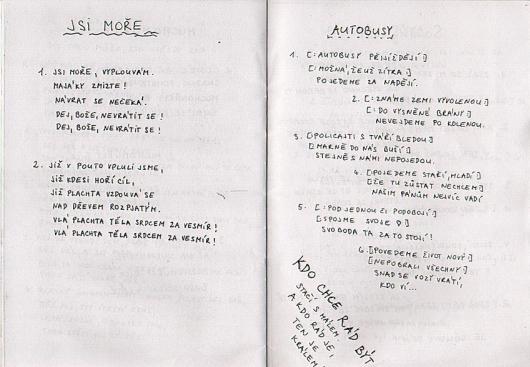 JSI MOŘE
1. JSI MOŘE, VYPLOUVÁM.
MAJÁKY ZMIZTE!
NÁVRAT SE NEČEKÁ.
DEJ, BOŽE, NEVRÁTIT SE!
DEJ, BOŽE, NEVRÁTIT SE!
2. JIŽ V POUTO VPLULI JSME,
JIŽ KDESI HOŘÍ CÍL,
JIŽ PLACHTA VZDOUVÁ SE
NAD DŘEVEM ROZPJATÝM.
VLÁ PLACHTA TĚLA SRDCEM ZA VESMÍR!
VLÁ PLACHTA TĚLA SRDCEM ZA VESMÍR!
AUTOBUSY
1. [:AUTOBUSY PŘIJÍŽDĚJÍ:]
[:MOŽNÁ, ŽE UŽ ZÍTRA:]
POJEDEME ZA NADĚJÍ.
2. [:ZNÁME ZEMI VYVOLENOU:]
[:DO VYSNĚNÉ BRÁNY:]
NEVEJDEME PO KOLENOU.
3. [:POLICAJTI S TVÁŘÍ BLEDOU:]
[:MARNĚ DO NÁS BUŠÍ:]
STEJNĚ S NÁMI NEPOJEDOU.
4. [:POJEDEME STAŘÍ, MLADÍ:]
[:ŽE TU ZŮSTAT NECHCEM:]
NAŠIM PÁNŮM NEJVÍC VADÍ
5. [:POD JEDNOU ČI PODOBOJÍ:]
[:SPOJME SVOJE
SVOBODA TA ZA TO STOJÍ!
6. [:POVEDEME ŽIVOT NOVÝ:]
[:NEPOBRALI VŠECHNY:]
SNAD SE VOZY VRÁTÍ,
KDO VÍ...
KDO CHCE RÁD BÝT
STAČÍ S MÁLEM.
A KDO RÁD JE,
TEN JE
KRÁLEM